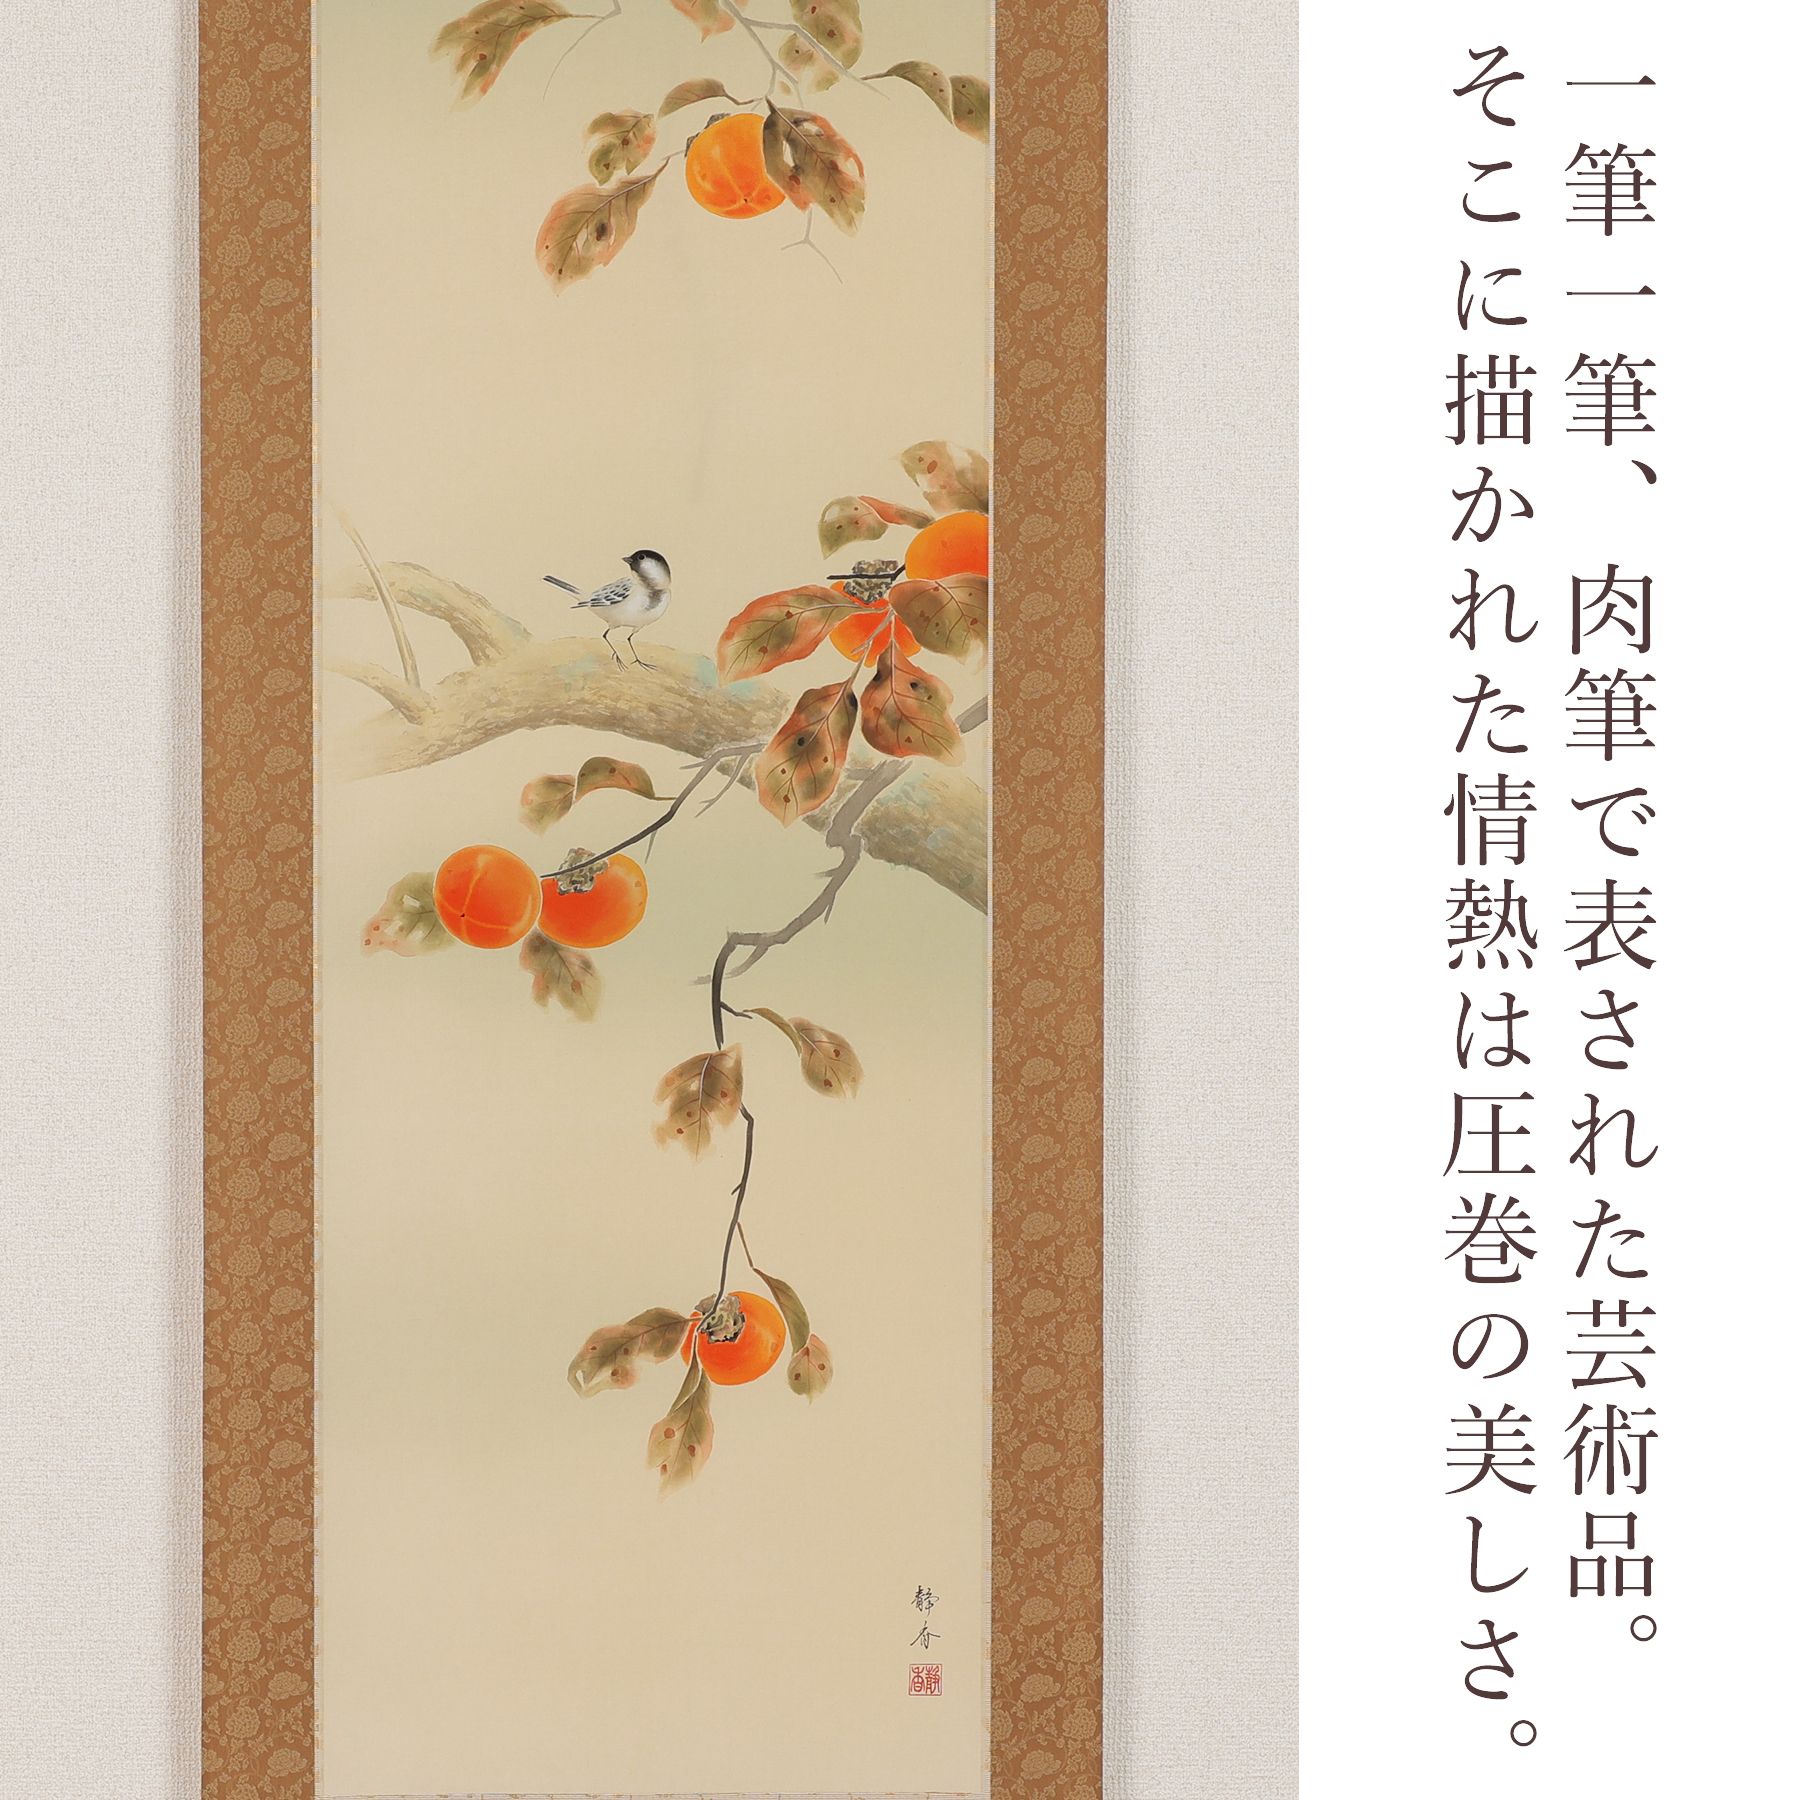 一筆一筆、肉筆で表された芸術品。
そこに描かれた情熱は圧巻の美しさ。
静香
静香